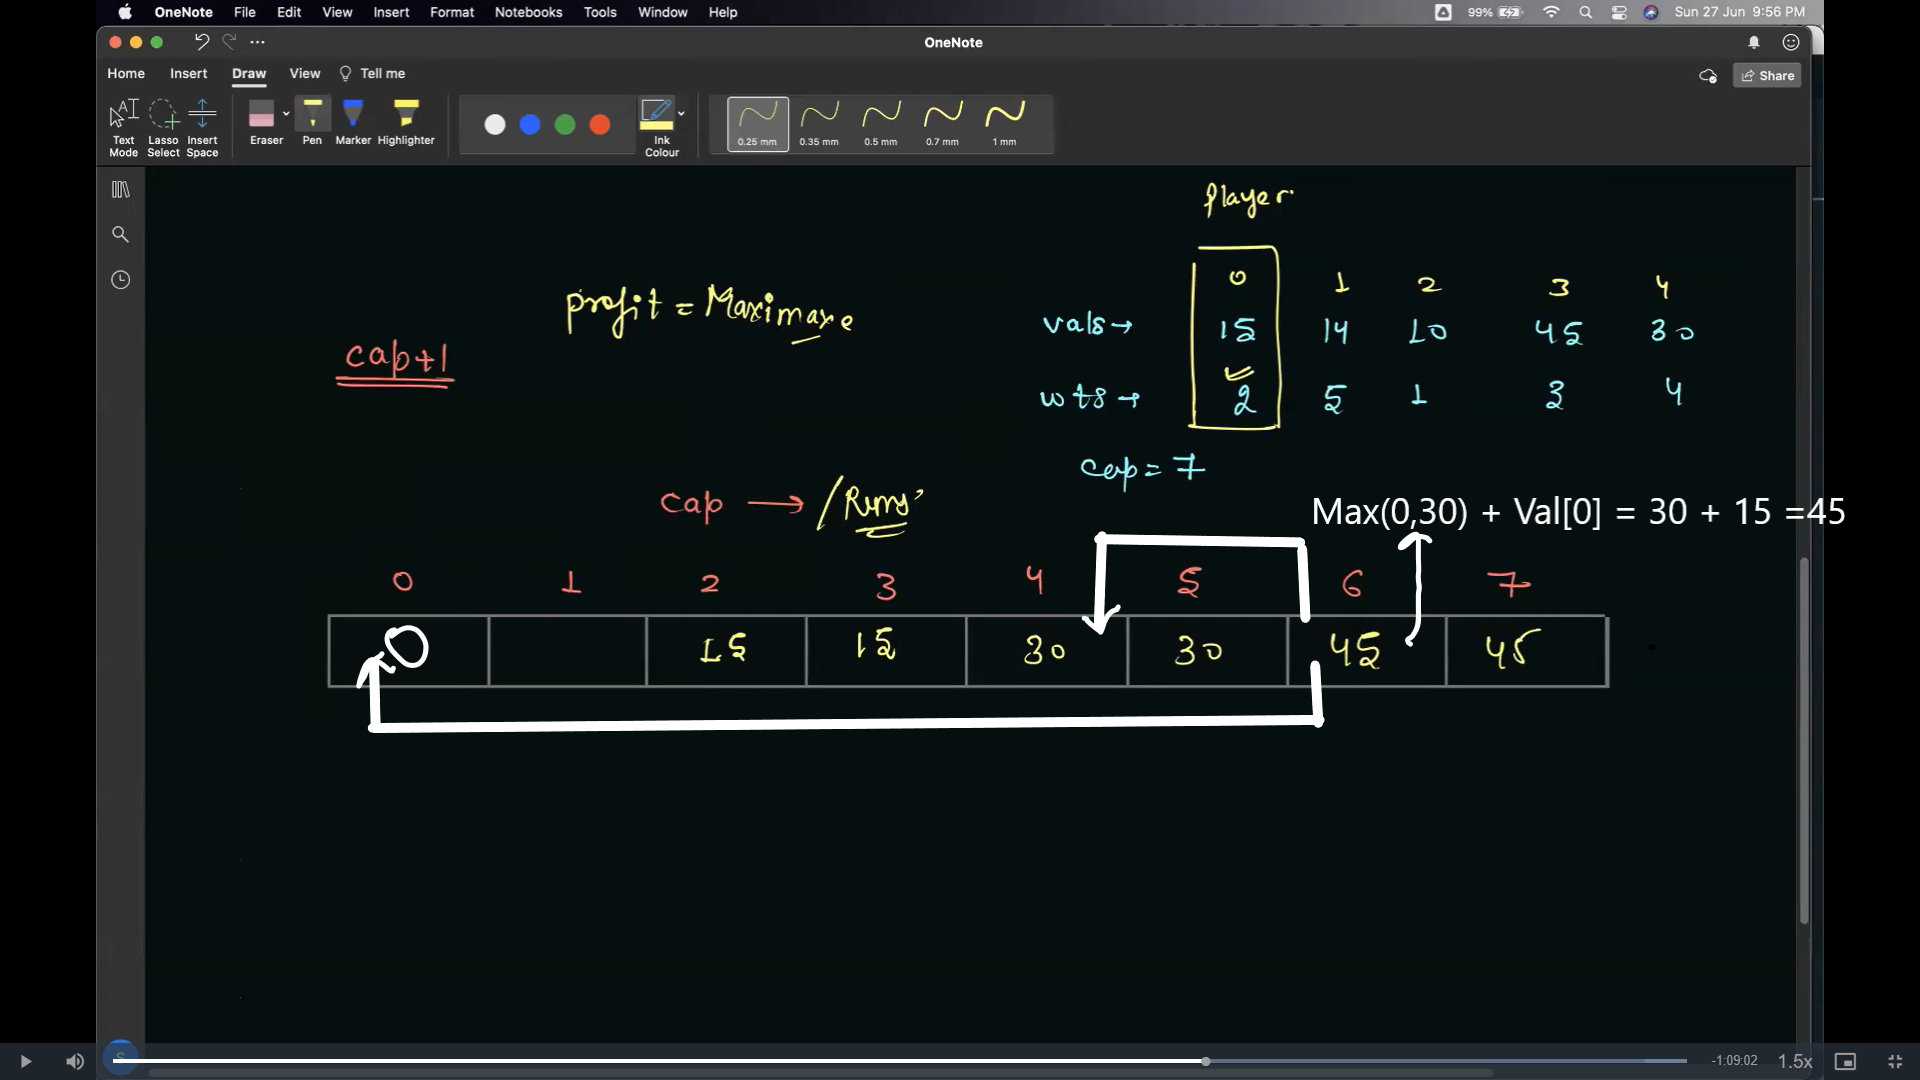 OneNote File Edit View Insert Format Notebooks Tools Window Help 99% Sun 27 Jun 9:56 PM
OneNote
Home Insert Draw View Tell me Share
Text Mode Lasso Select Insert Space Eraser Pen Marker Highlighter Ink Colour 0.25 mm 0.35 mm 0.5 mm 0.7 mm 1 mm
Player
0 1 2 3 4
profit = Maximaxe
vals → 15 14 10 45 30
cap+1
wts → 2 5 1 3 4
cap = 7
cap → /Runs
Max(0,30) + Val[0] = 30 + 15 =45
0 1 2 3 4 5 6 7
0 15 15 30 30 45 45
S
-1:09:02 1.5x